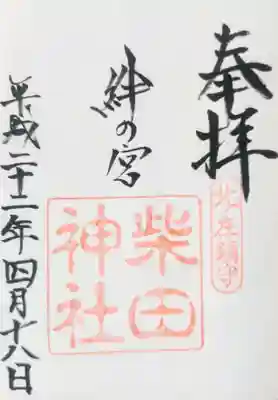 奉拝
北庄鎮守
絆の宮
柴田神社
平成二十二年四月十八日